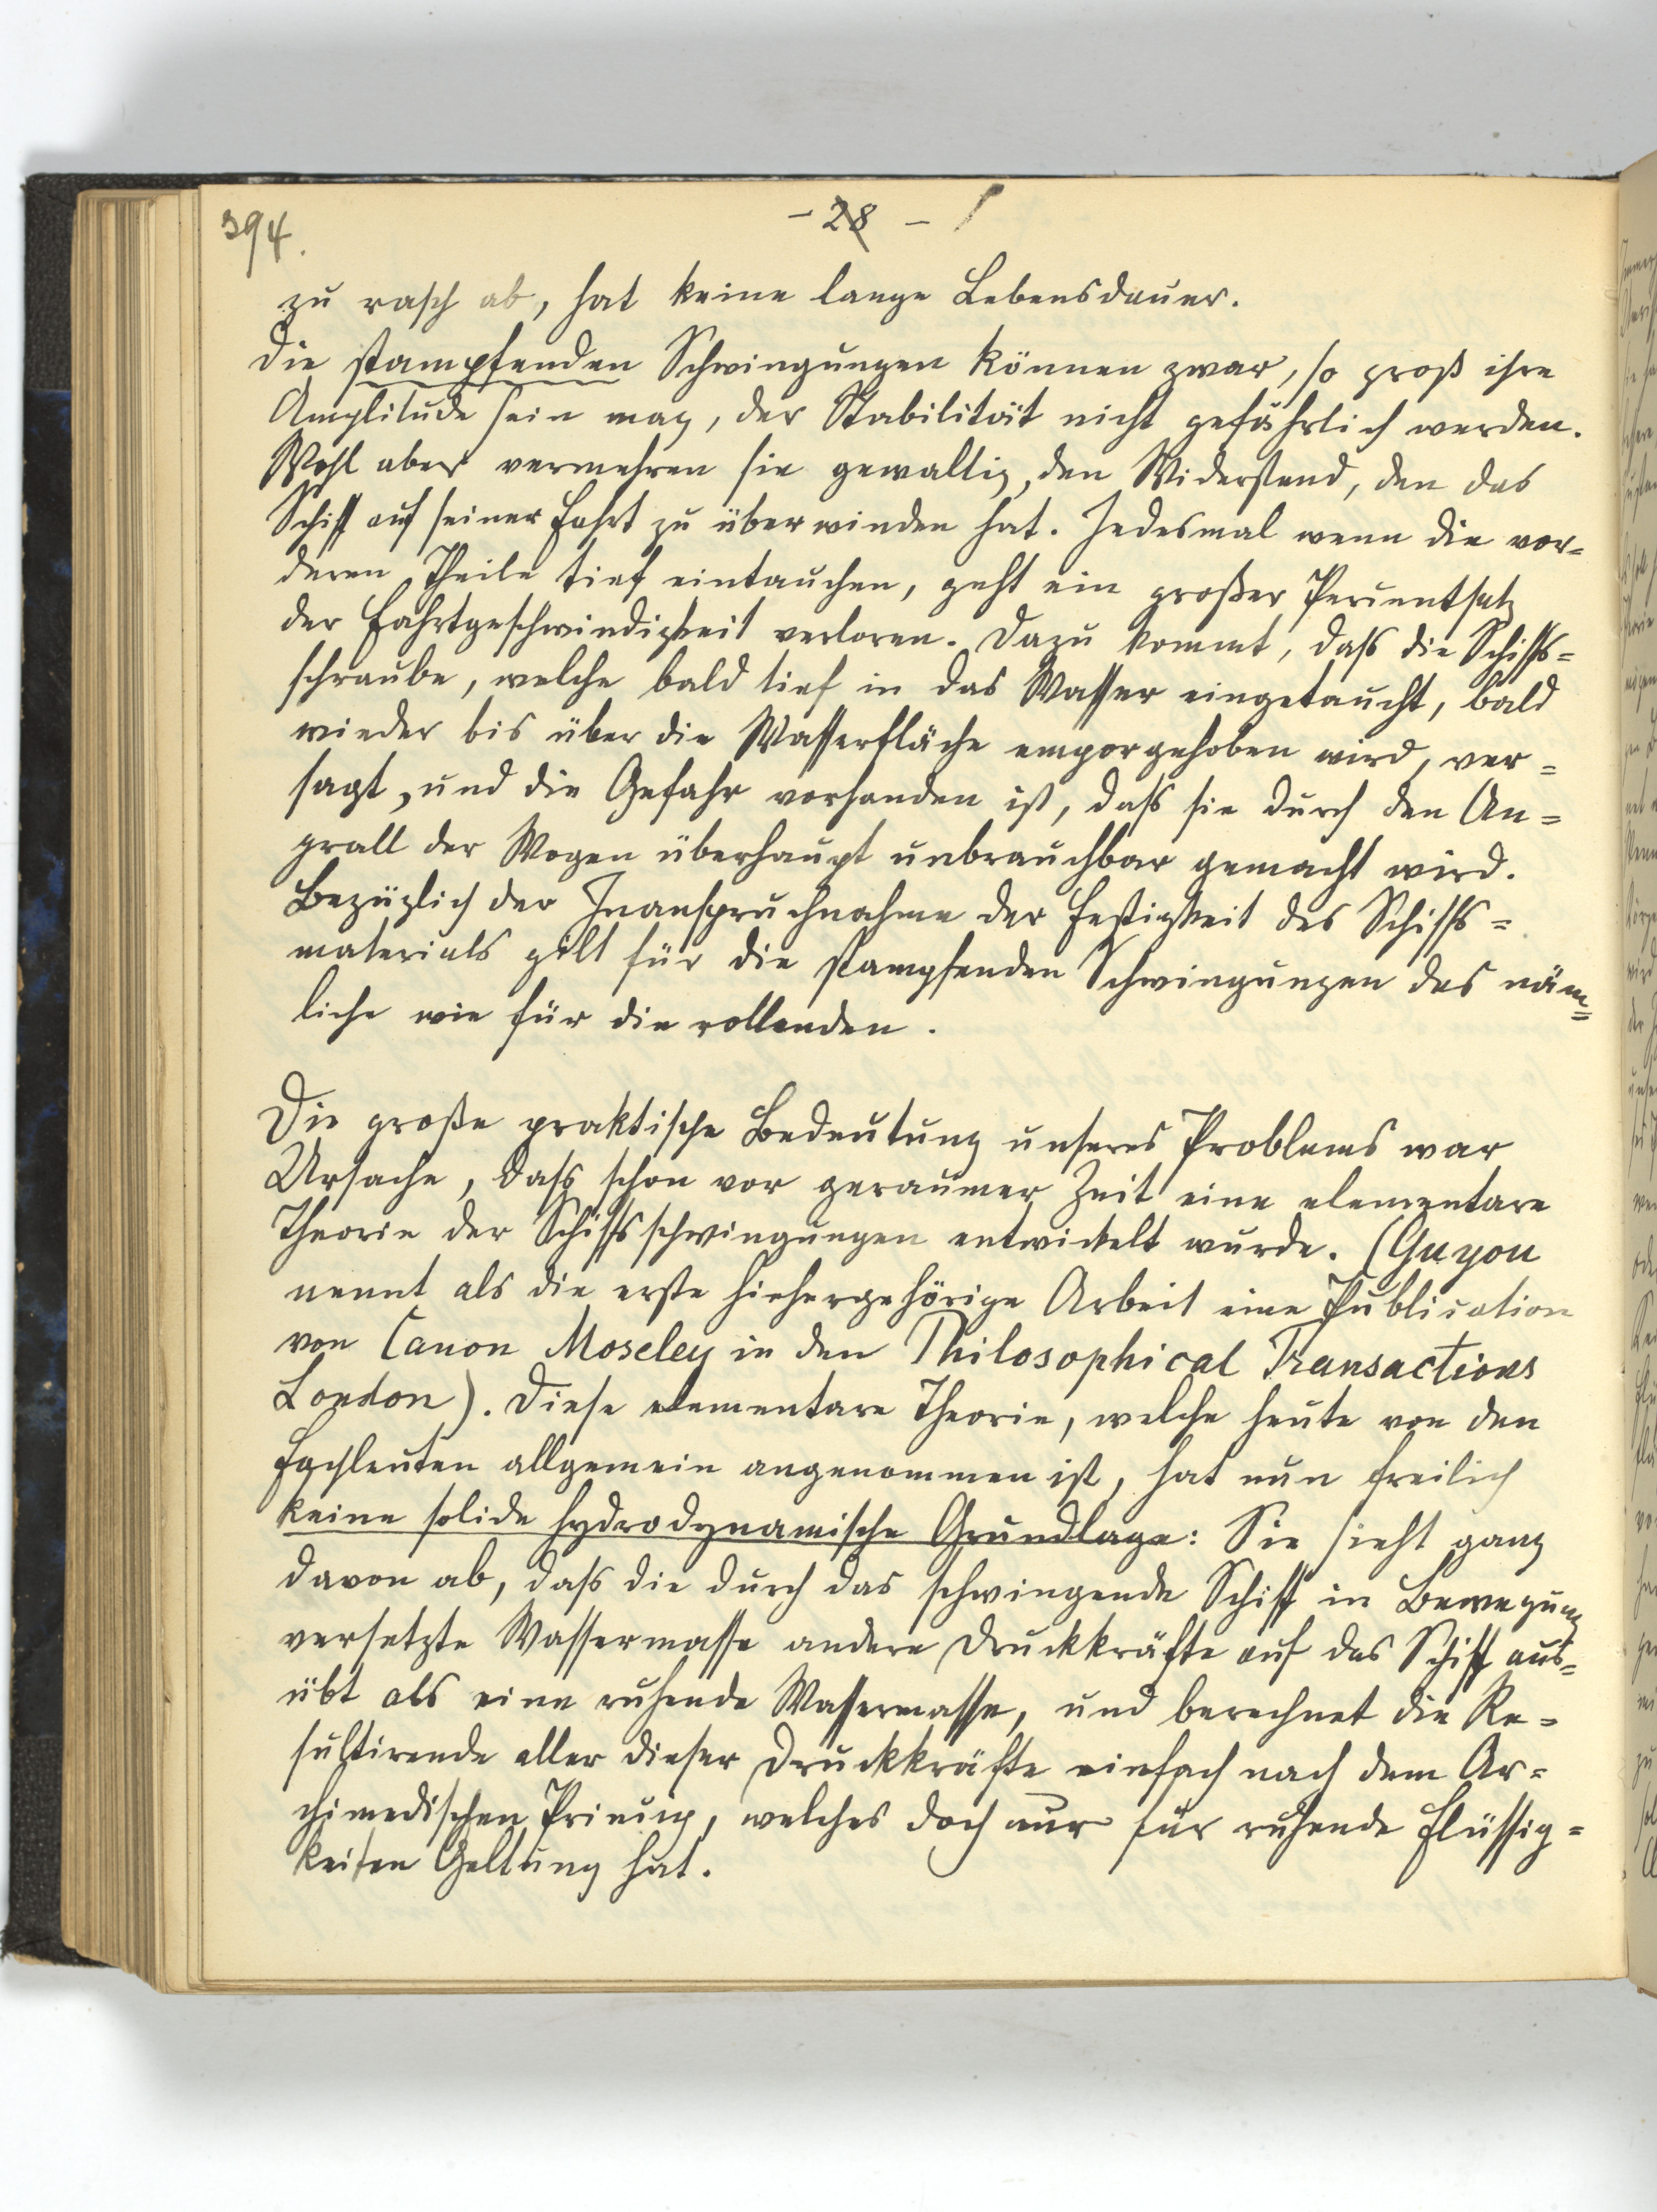 394.
- 28 -
zu rasch ab, hat keine lange Lebensdauer.
Die stampfenden Schwingungen können zwar, so groß ihre
Amplitude sein mag, der Stabilität nicht gefährlich werden.
Wohl aber vermehren sie gewaltig, den Widerstand, den das
Schiff auf seiner Fahrt zu überwinden hat. Jedesmal wenn die vor=
deren Theile tief eintauchen, geht ein großer Percentsatz
der Fahrtgeschwindigkeit verloren. Dazu kommt, daß die Schiffs=
schraube, welche bald tief in das Wasser eingetaucht, bald
wieder bis über die Wasserfläche emporgehoben wird, ver=
sagt, und die Gefahr vorhanden ist, daß sie durch den An=
prall der Wogen überhaupt unbrauchbar gemacht wird.
Bezüglich der Inanspruchnahme der Festigkeit des Schiffs=
materials gilt für die stampfenden Schwingungen das näm=
liche wie für die rollenden.
Die große praktische Bedeutung unseres Problems war
Ursache, daß schon vor geraumer Zeit eine elementare
Theorie der Schiffsschwingungen entwickelt wurde. (Guyou
nennt als die erste hiehergehörige Arbeit eine Publication
von Canon Moseley in den Philosophical Transactions
London). Diese elementare Theorie, welche heute von den
Fachleuten allgemein angenommen ist, hat nun freilich
keine solide hydrodynamische Grundlage: Sie sieht ganz
davon ab, daß die durch das schwingende Schiff in Bewegung
versetzte Wassermasse andere Druckkräfte auf das Schiff aus=
übt als eine ruhende Wassermasse, und berechnet die Re=
sultirende aller dieser Druckkräfte einfach nach dem Ar=
chimedischen Princip, welches doch nur für ruhende Flüssig=
keiten Geltung hat.